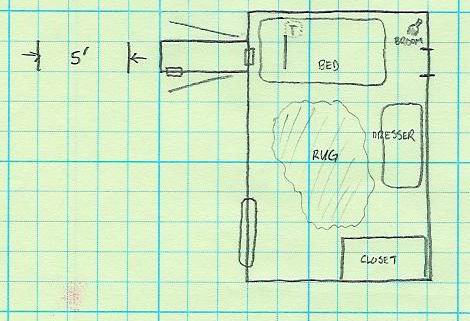 T
5'
BROOM
BED
DRESSER
RUG
CLOSET